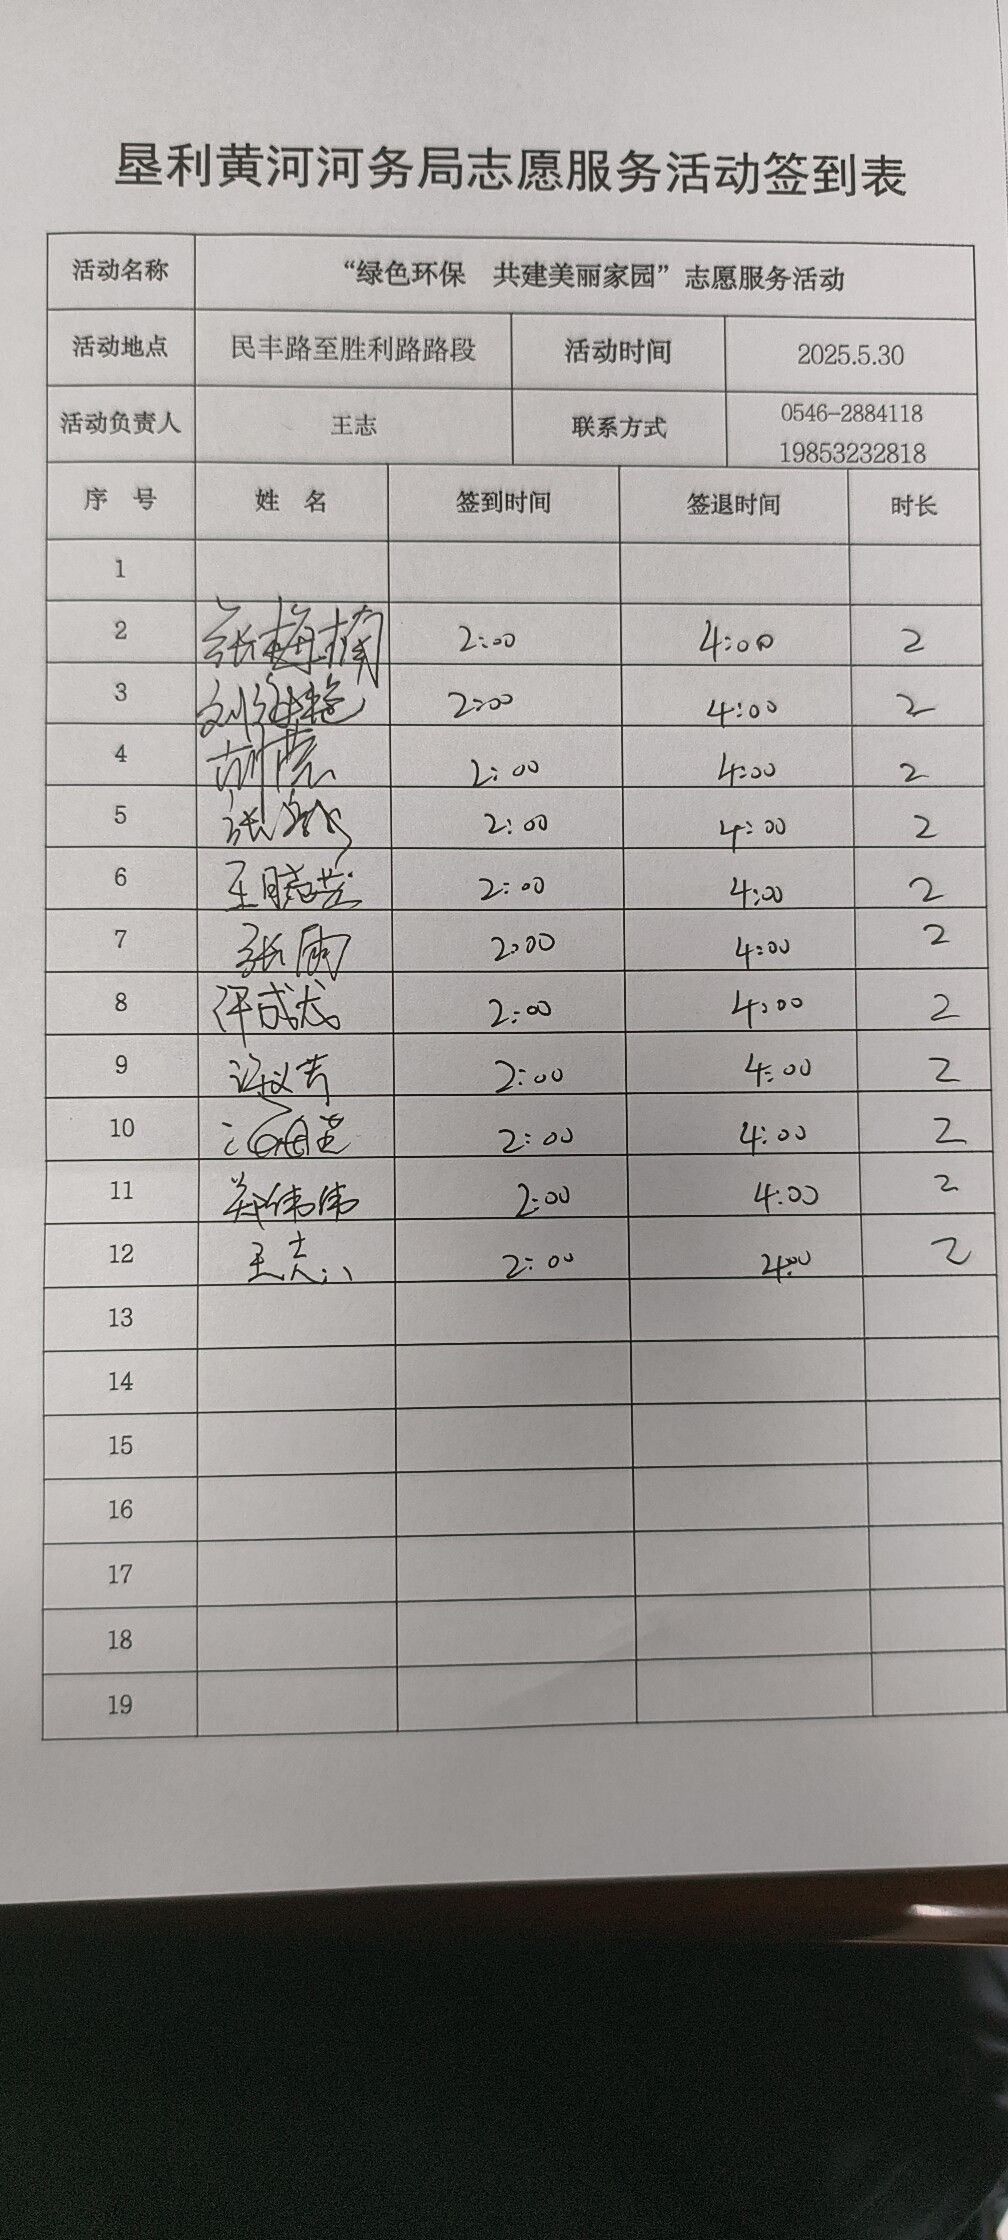 垦利黄河河务局志愿服务活动签到表
活动名称 “绿色环保 共建美丽家园”志愿服务活动
活动地点 民丰路至胜利路路段 活动时间 2025.5.30
活动负责人 王志 联系方式 0546-2884118
19853232818
序 号 姓 名 签到时间 签退时间 时长
1
2 张梅楠 2:00 4:00 2
3 刘 2:00 4:00 2
4 胡 2:00 4:00 2
5 张 2:00 4:00 2
6 王晓芸 2:00 4:00 2
7 张雨 2:00 4:00 2
8 许成龙 2:00 4:00 2
9 2:00 4:00 2
10 2:00 4:00 2
11 郑伟伟 2:00 4:00 2
12 王志 2:00 4:00 2
13
14
15
16
17
18
19